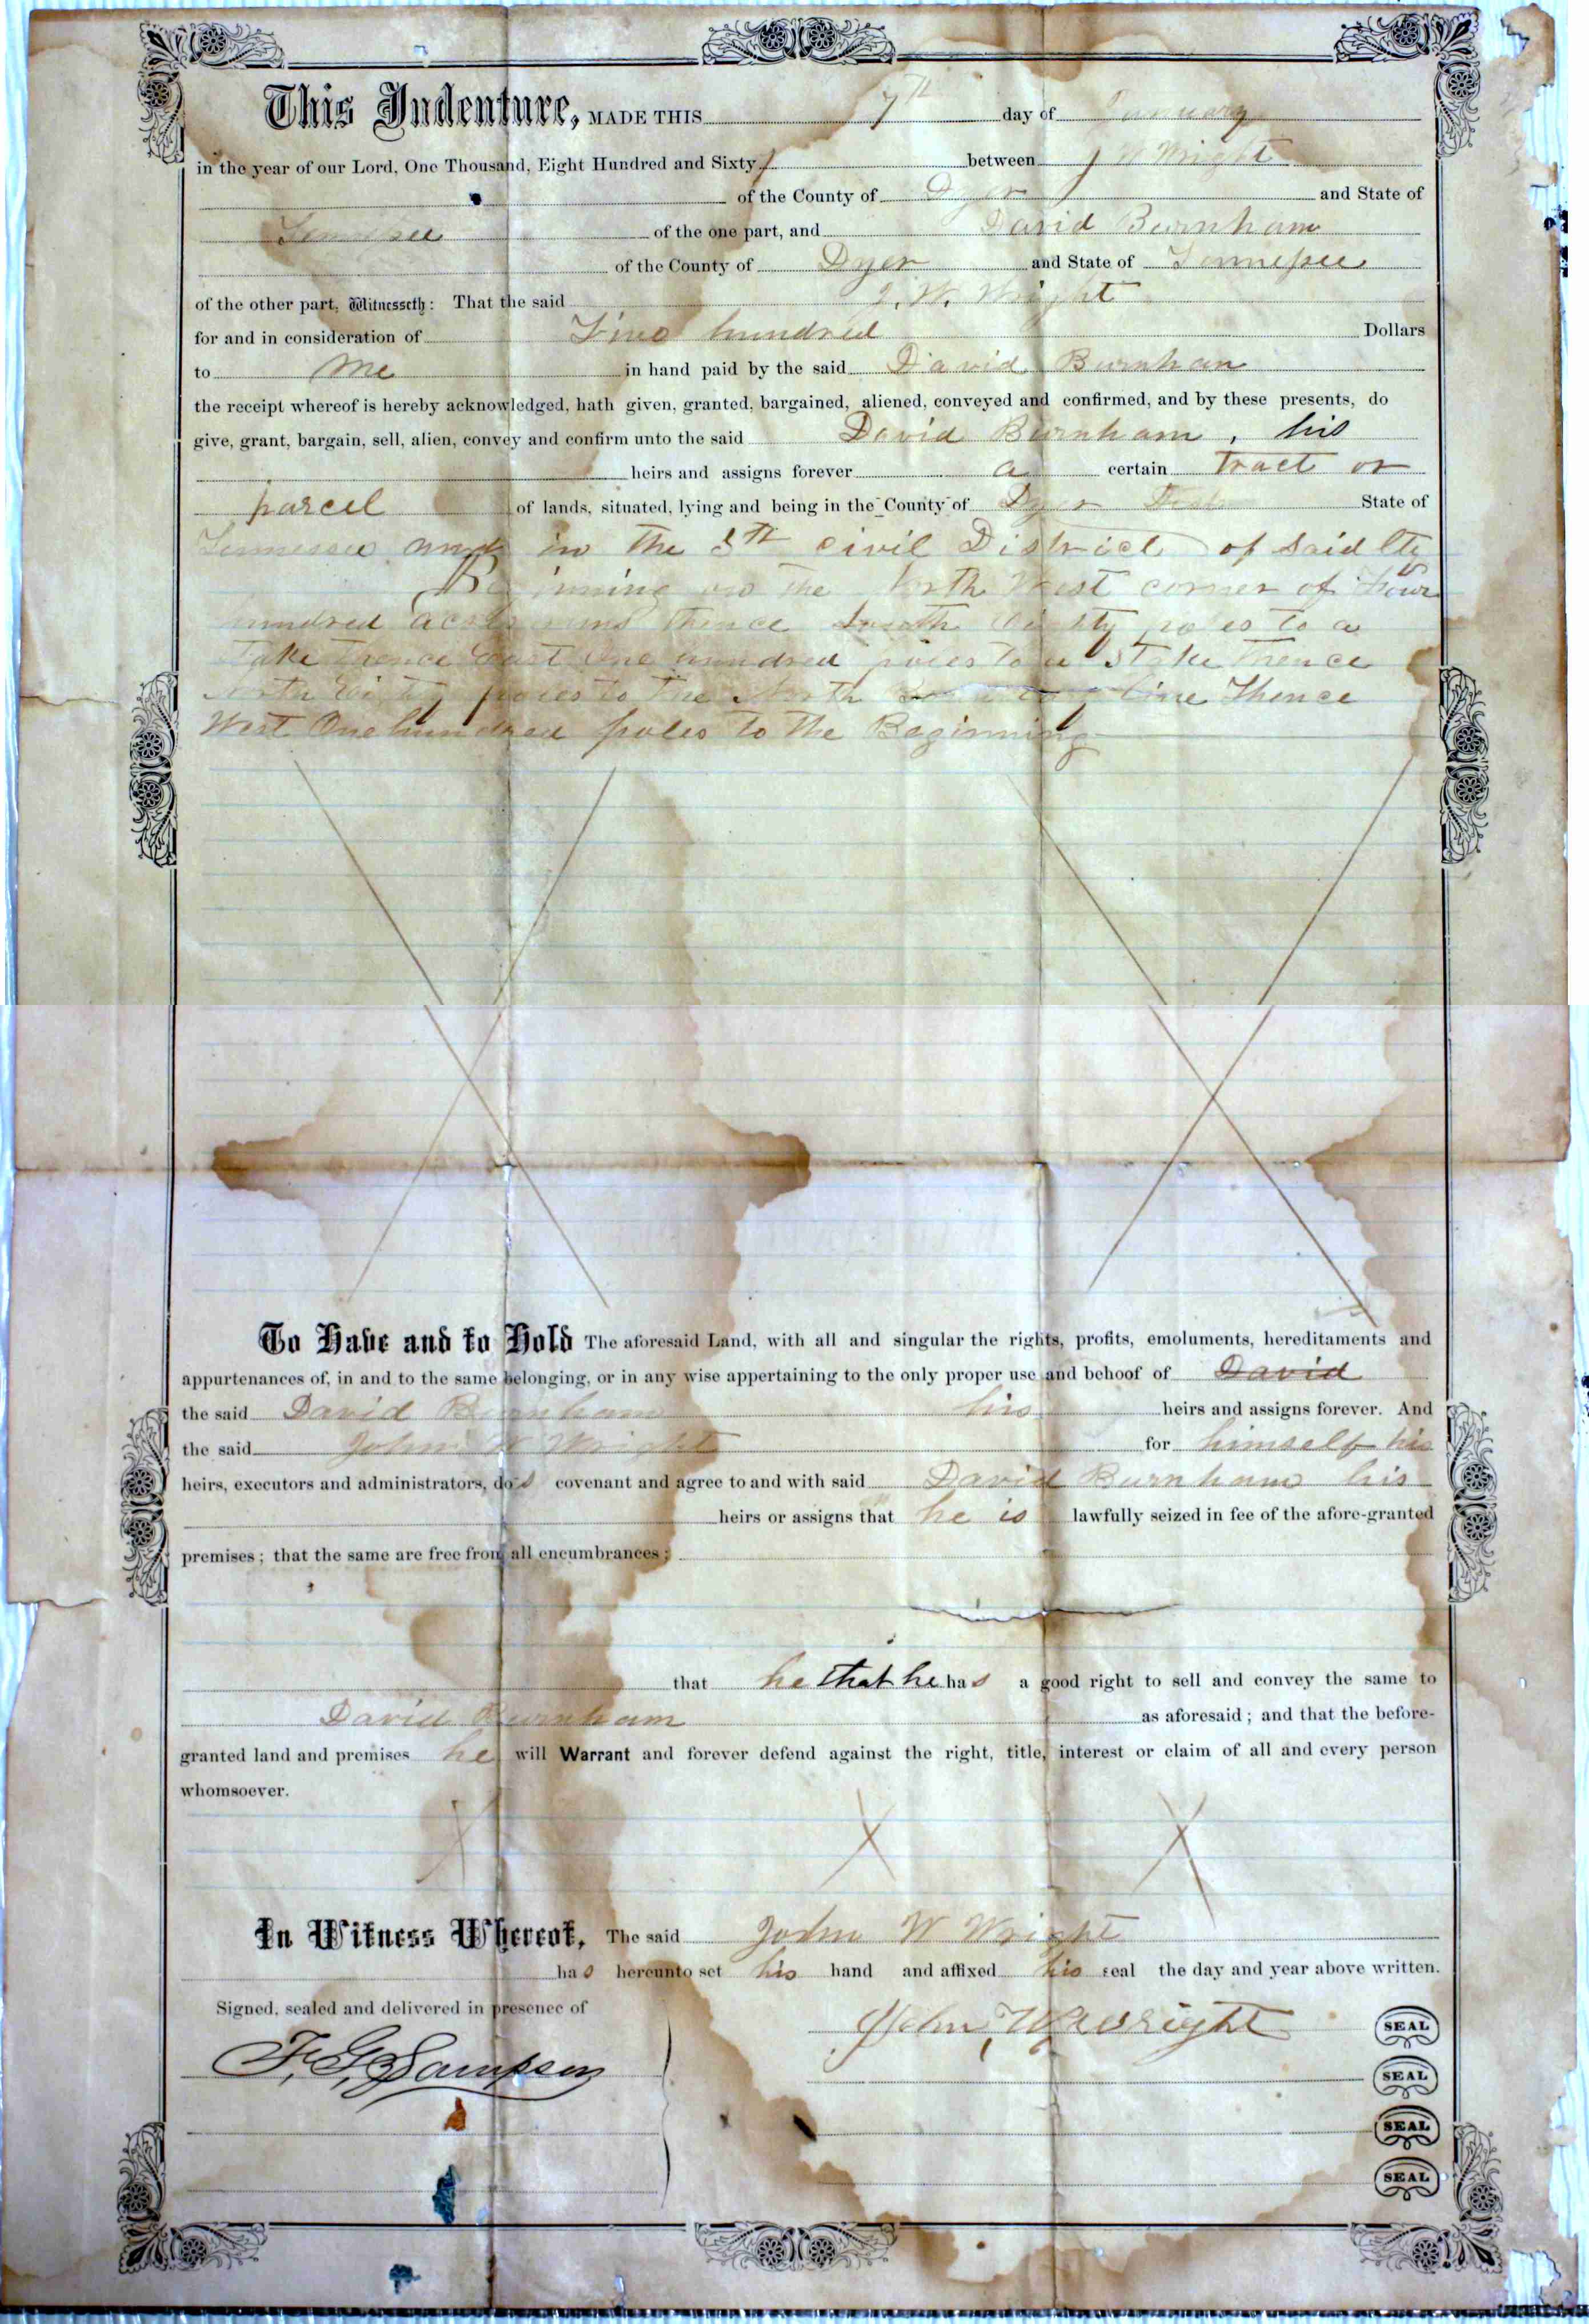 This Indenture, MADE THIS 7th day of January
in the year of our Lord, One Thousand, Eight Hundred and Sixty between J W Wright
of the County of Dyer and State of
Tennessee of the one part, and David Burnham
of the County of Dyer and State of Tennessee
of the other part, Witnesseth: That the said J. W. Wright
for and in consideration of hundred Dollars
to me in hand paid by the said David Burnham
the receipt whereof is hereby acknowledged, hath given, granted, bargained, aliened, conveyed and confirmed, and by these presents, do
give, grant, bargain, sell, alien, convey and confirm unto the said David Burnham, his
heirs and assigns forever a certain tract or
parcel of lands, situated, lying and being in the County of Dyer State of
Tennessee and in the civil District of said Cty
Beginning on the North West corner of Four
hundred acres runs thence South Eighty poles to a
Stake Thence East One hundred poles to a Stake Thence
North Eighty poles to the North line Thence
West One hundred poles to the Beginning
To Have and to Hold The aforesaid Land, with all and singular the rights, profits, emoluments, hereditaments and
appurtenances of, in and to the same belonging, or in any wise appertaining to the only proper use and behoof of David
the said David Burnham his heirs and assigns forever. And
the said John W Wright for himself his
heirs, executors and administrators, dos covenant and agree to and with said David Burnham his
heirs or assigns that he is lawfully seized in fee of the afore-granted
premises; that the same are free from all encumbrances;
that he that he has a good right to sell and convey the same to
David Burnham as aforesaid; and that the before-
granted land and premises he will Warrant and forever defend against the right, title, interest or claim of all and every person
whomsoever.
In Witness Whereof, The said John W Wright
has hereunto set his hand and affixed his seal the day and year above written.
Signed, sealed and delivered in presence of
John W Wright SEAL
F. G. Sampson SEAL
SEAL
SEAL